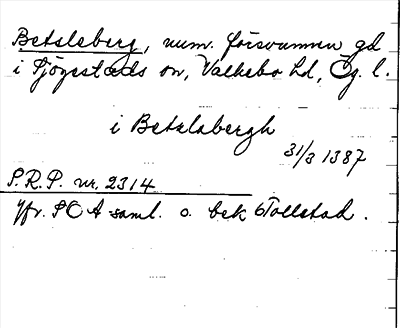 Betsleberg, num. försvunnen gd
i Sjögestads sn, Valkebo hd, Ög. l.
i Betzlabergh
31/3 1387
S.R.P. nr. 2314
Jfr. SOA saml. o. bek Tollstad.